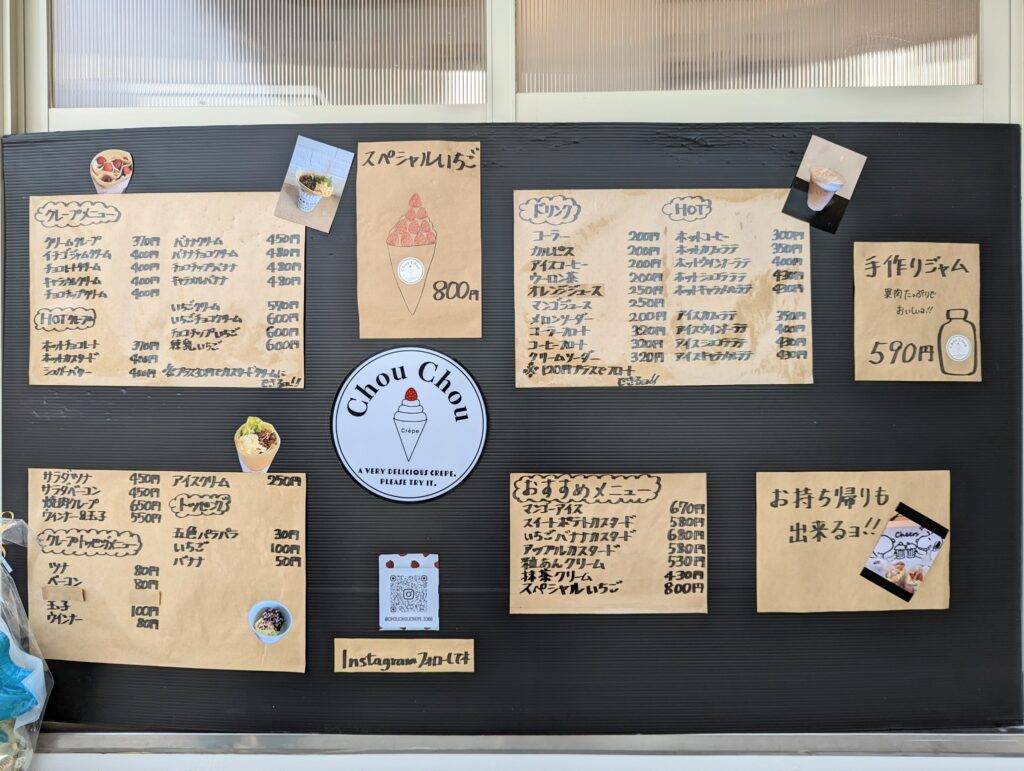 クレープメニュー
クリームクレープ 370円
イチゴジャムクリーム 400円
チョコレートクリーム 400円
キャラメルクリーム 400円
チョコチップクリーム 400円
HOTクレープ
ホットチョコレート 370円
ホットカスタード 400円
シュガーバター 400円
バナナクリーム 450円
バナナチョコクリーム 480円
チョコチップバナナ 480円
キャラメルバナナ 480円
いちごクリーム 570円
いちごチョコクリーム 600円
チョコチップいちご 600円
練乳いちご 600円
※プラス30円でカスタードクリームに
できるョ!!
スペシャルいちご
Chou Chou
800円
Chou Chou
Crêpe
A VERY DELICIOUS CREPE.
PLEASE TRY IT.
ドリンク
コーラー 200円
カルピス 200円
アイスコーヒー 200円
ウーロン茶 200円
オレンジジュース 250円
マンゴジュース 250円
メロンソーダー 200円
コーラーフロート 320円
コーヒーフロート 320円
クリームソーダー 320円
※120円プラスでフロート
できるョ!!
HOT
ホットコーヒー 300円
ホットカフェラテ 350円
ホットウインナーラテ 400円
ホットショコララテ 430円
ホットキャラメルラテ 430円
アイスカフェラテ 350円
アイスウインナーラテ 400円
アイスショコララテ 430円
アイスキャラメルラテ 430円
手作りジャム
果肉たっぷりで
おいしいョ!!
590円
サラダツナ 450円
サラダベーコン 450円
焼肉クレープ 650円
ウインナー&玉子 550円
クレープトッピングメニュー
ツナ 80円
ベーコン 80円
玉子 100円
ウインナー 80円
アイスクリーム 250円
トッピング
五色パラパラ 30円
いちご 100円
バナナ 50円
@CHOUCHOUCREPE.3388
Instagramフォローしてネ
おすすめメニュー
マンゴーアイス 670円
スイートポテトカスタード 580円
いちごバナナカスタード 680円
アップルカスタード 580円
粒あんクリーム 530円
抹茶クリーム 430円
スペシャルいちご 800円
お持ち帰りも
出来るョ!!
Cheers